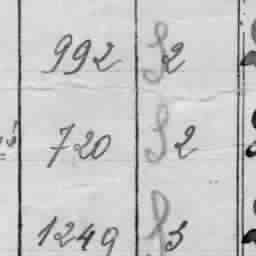 992 2
720 2
1249 3